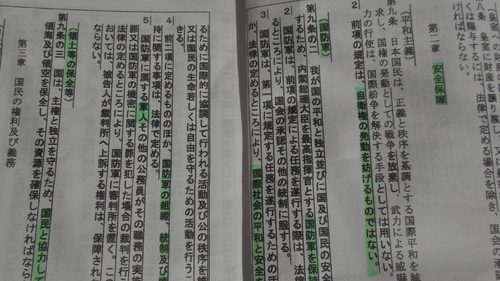 ければならない。
第二章　安全保障
（平和主義）
第九条　日本国民は、正義と秩序を基調とする国際平和を誠
求し、国権の発動としての戦争を放棄し、武力による威嚇
力の行使は、国際紛争を解決する手段としては用いない。
２　前項の規定は、自衛権の発動を妨げるものではない。
（国防軍）
第九条の二　我が国の平和と独立並びに国及び国民の安全
するため、内閣総理大臣を最高指揮官とする国防軍を保持
２　国防軍は、前項の規定による任務を遂行する際は、法律
るところにより、国会の承認その他の統制に服する。
３　国防軍は、第一項に規定する任務を遂行するための活
か、法律の定めるところにより、国際社会の平和と安全を
るために国際的に協調して行われる活動及び公の秩序を維
又は国民の生命若しくは自由を守るための活動を行うこ
きる。
４　前二項に定めるもののほか、国防軍の組織、統制及び機
持に関する事項は、法律で定める。
５　国防軍に属する軍人その他の公務員がその職務の実施
罪又は国防軍の機密に関する罪を犯した場合の裁判を行う
法律の定めるところにより、国防軍に審判所を置く。こ
おいては、被告人が裁判所へ上訴する権利は、保障され
ならない。
（領土等の保全等）
第九条の三　国は、主権と独立を守るため、国民と協力して
領海及び領空を保全し、その資源を確保しなければなら
第三章　国民の権利及び義務